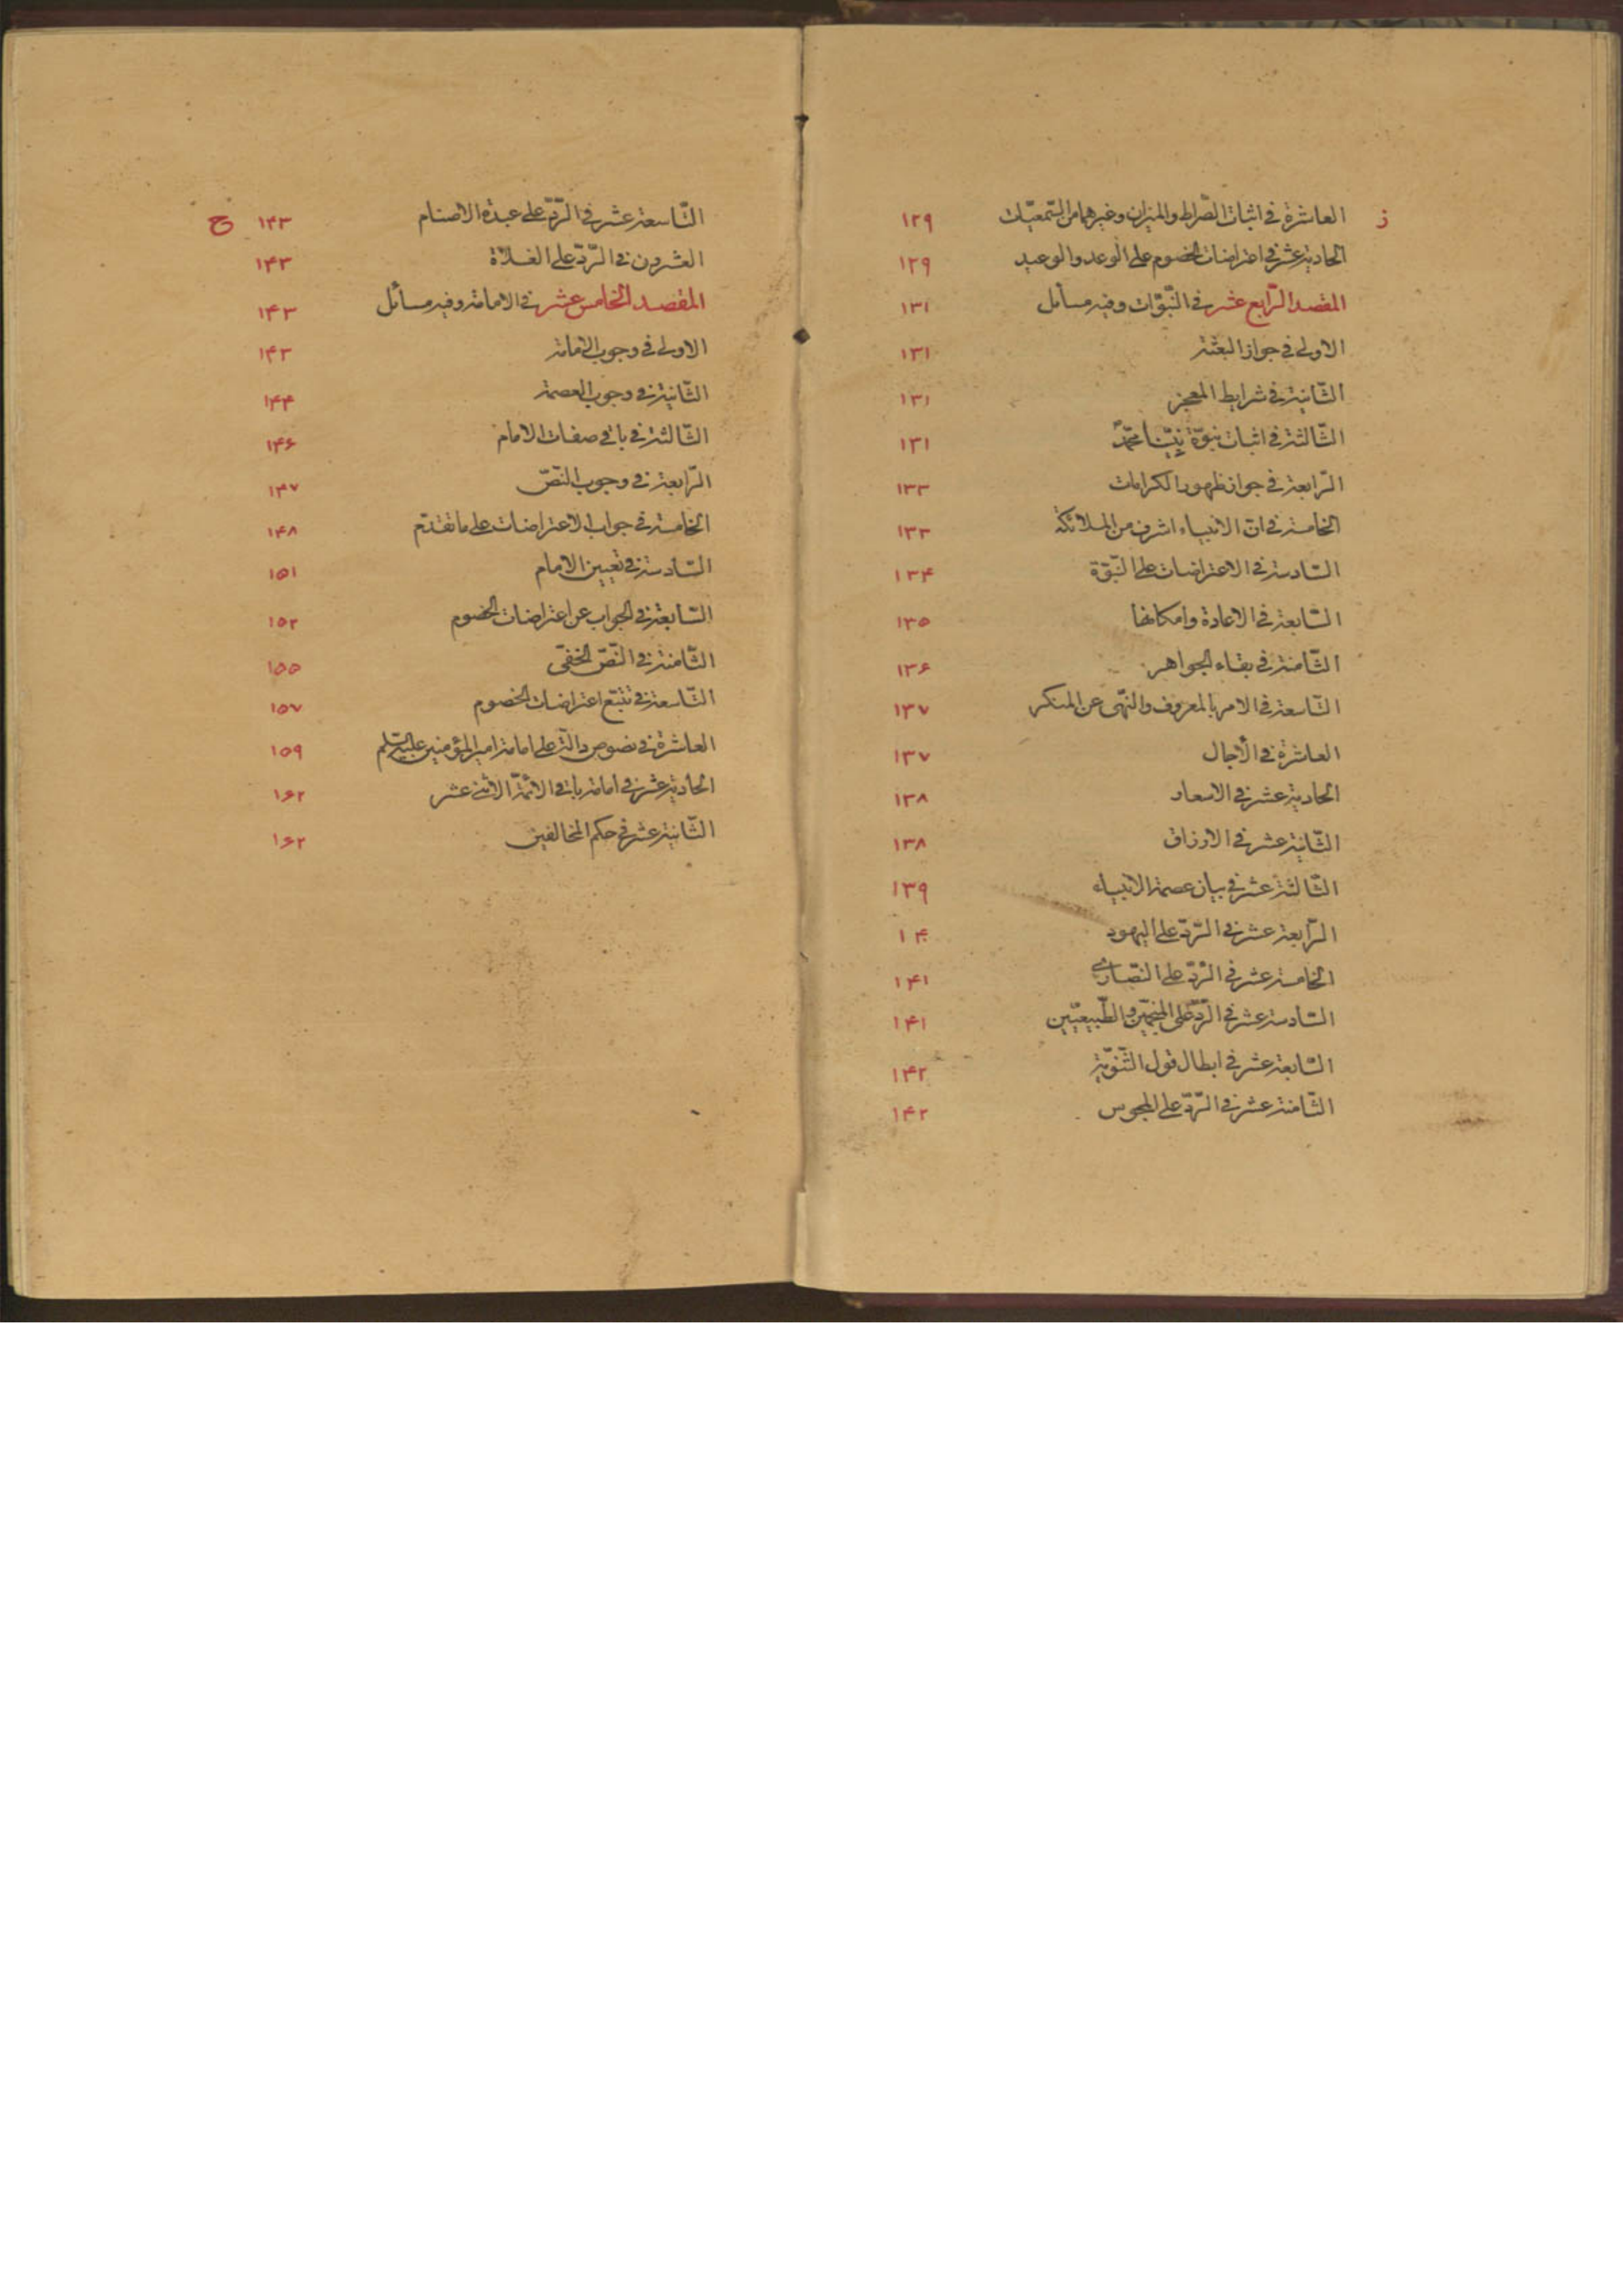 ز العاشرة في اثبات الصّراط والميزان وغيرهما من السّمعيّات ١٢٩
الحادية عشر في اعتراضات الخصوم على الوعد والوعيد ١٢٩
المقصد الرّابع عشر في النّبوّات وفيه مسائل ١٣١
الاولى في جواز البعثة ١٣١
الثّانية في شرايط المعجز ١٣١
الثّالثة في اثبات نبوّة نبيّنا محمّد ١٣١
الرّابعة في جواز ظهور الكرامات ١٣٣
الخامسة في انّ الانبياء اشرف من الملائكة ١٣٣
السّادسة في الاعتراضات على النّبوّة ١٣۴
السّابعة في الاعادة وامكانها ١٣٥
الثّامنة في بقاء الجواهر ١٣۶
التّاسعة في الامر بالمعروف والنّهى عن المنكر ١٣٧
العاشرة في الآجال ١٣٧
الحادية عشر في الاسعار ١٣٨
الثّانية عشر في الارزاق ١٣٨
الثّالثة عشر في بيان عصمة الانبياء ١٣٩
الرّابعة عشر في الرّدّ على اليهود ١۴٠
الخامسة عشر في الرّدّ على النّصارى ١۴١
السّادسة عشر في الرّدّ على المنجّمين والطّبيعيّين ١۴١
السّابعة عشر في ابطال قول الثّنويّة ١۴٢
الثّامنة عشر في الرّدّ على المجوس ١۴٢
التّاسعة عشر في الرّدّ على عبدة الاصنام ١۴٣ ح
العشرون في الرّدّ على الغلاة ١۴٣
المقصد الخامس عشر في الامامة وفيه مسائل ١۴٣
الاولى في وجوب الامامة ١۴٣
الثّانية في وجوب العصمة ١۴۴
الثّالثة في باقى صفات الامام ١۴۶
الرّابعة في وجوب النّصّ ١۴٧
الخامسة في جواب الاعتراضات على ما تقدّم ١۴٨
السّادسة في تعيين الامام ١٥١
السّابعة في الجواب عن اعتراضات الخصوم ١٥٢
الثّامنة في النّصّ الخفىّ ١٥٥
التّاسعة في تتبّع اعتراضات الخصوم ١٥٧
العاشرة في نصوص دالّة على امامة امير المؤمنين عليه السّلم ١٥٩
الحادية عشر في امامة باقى الائمّة الاثنى عشر ١۶٢
الثّانية عشر في حكم المخالفين ١۶٢